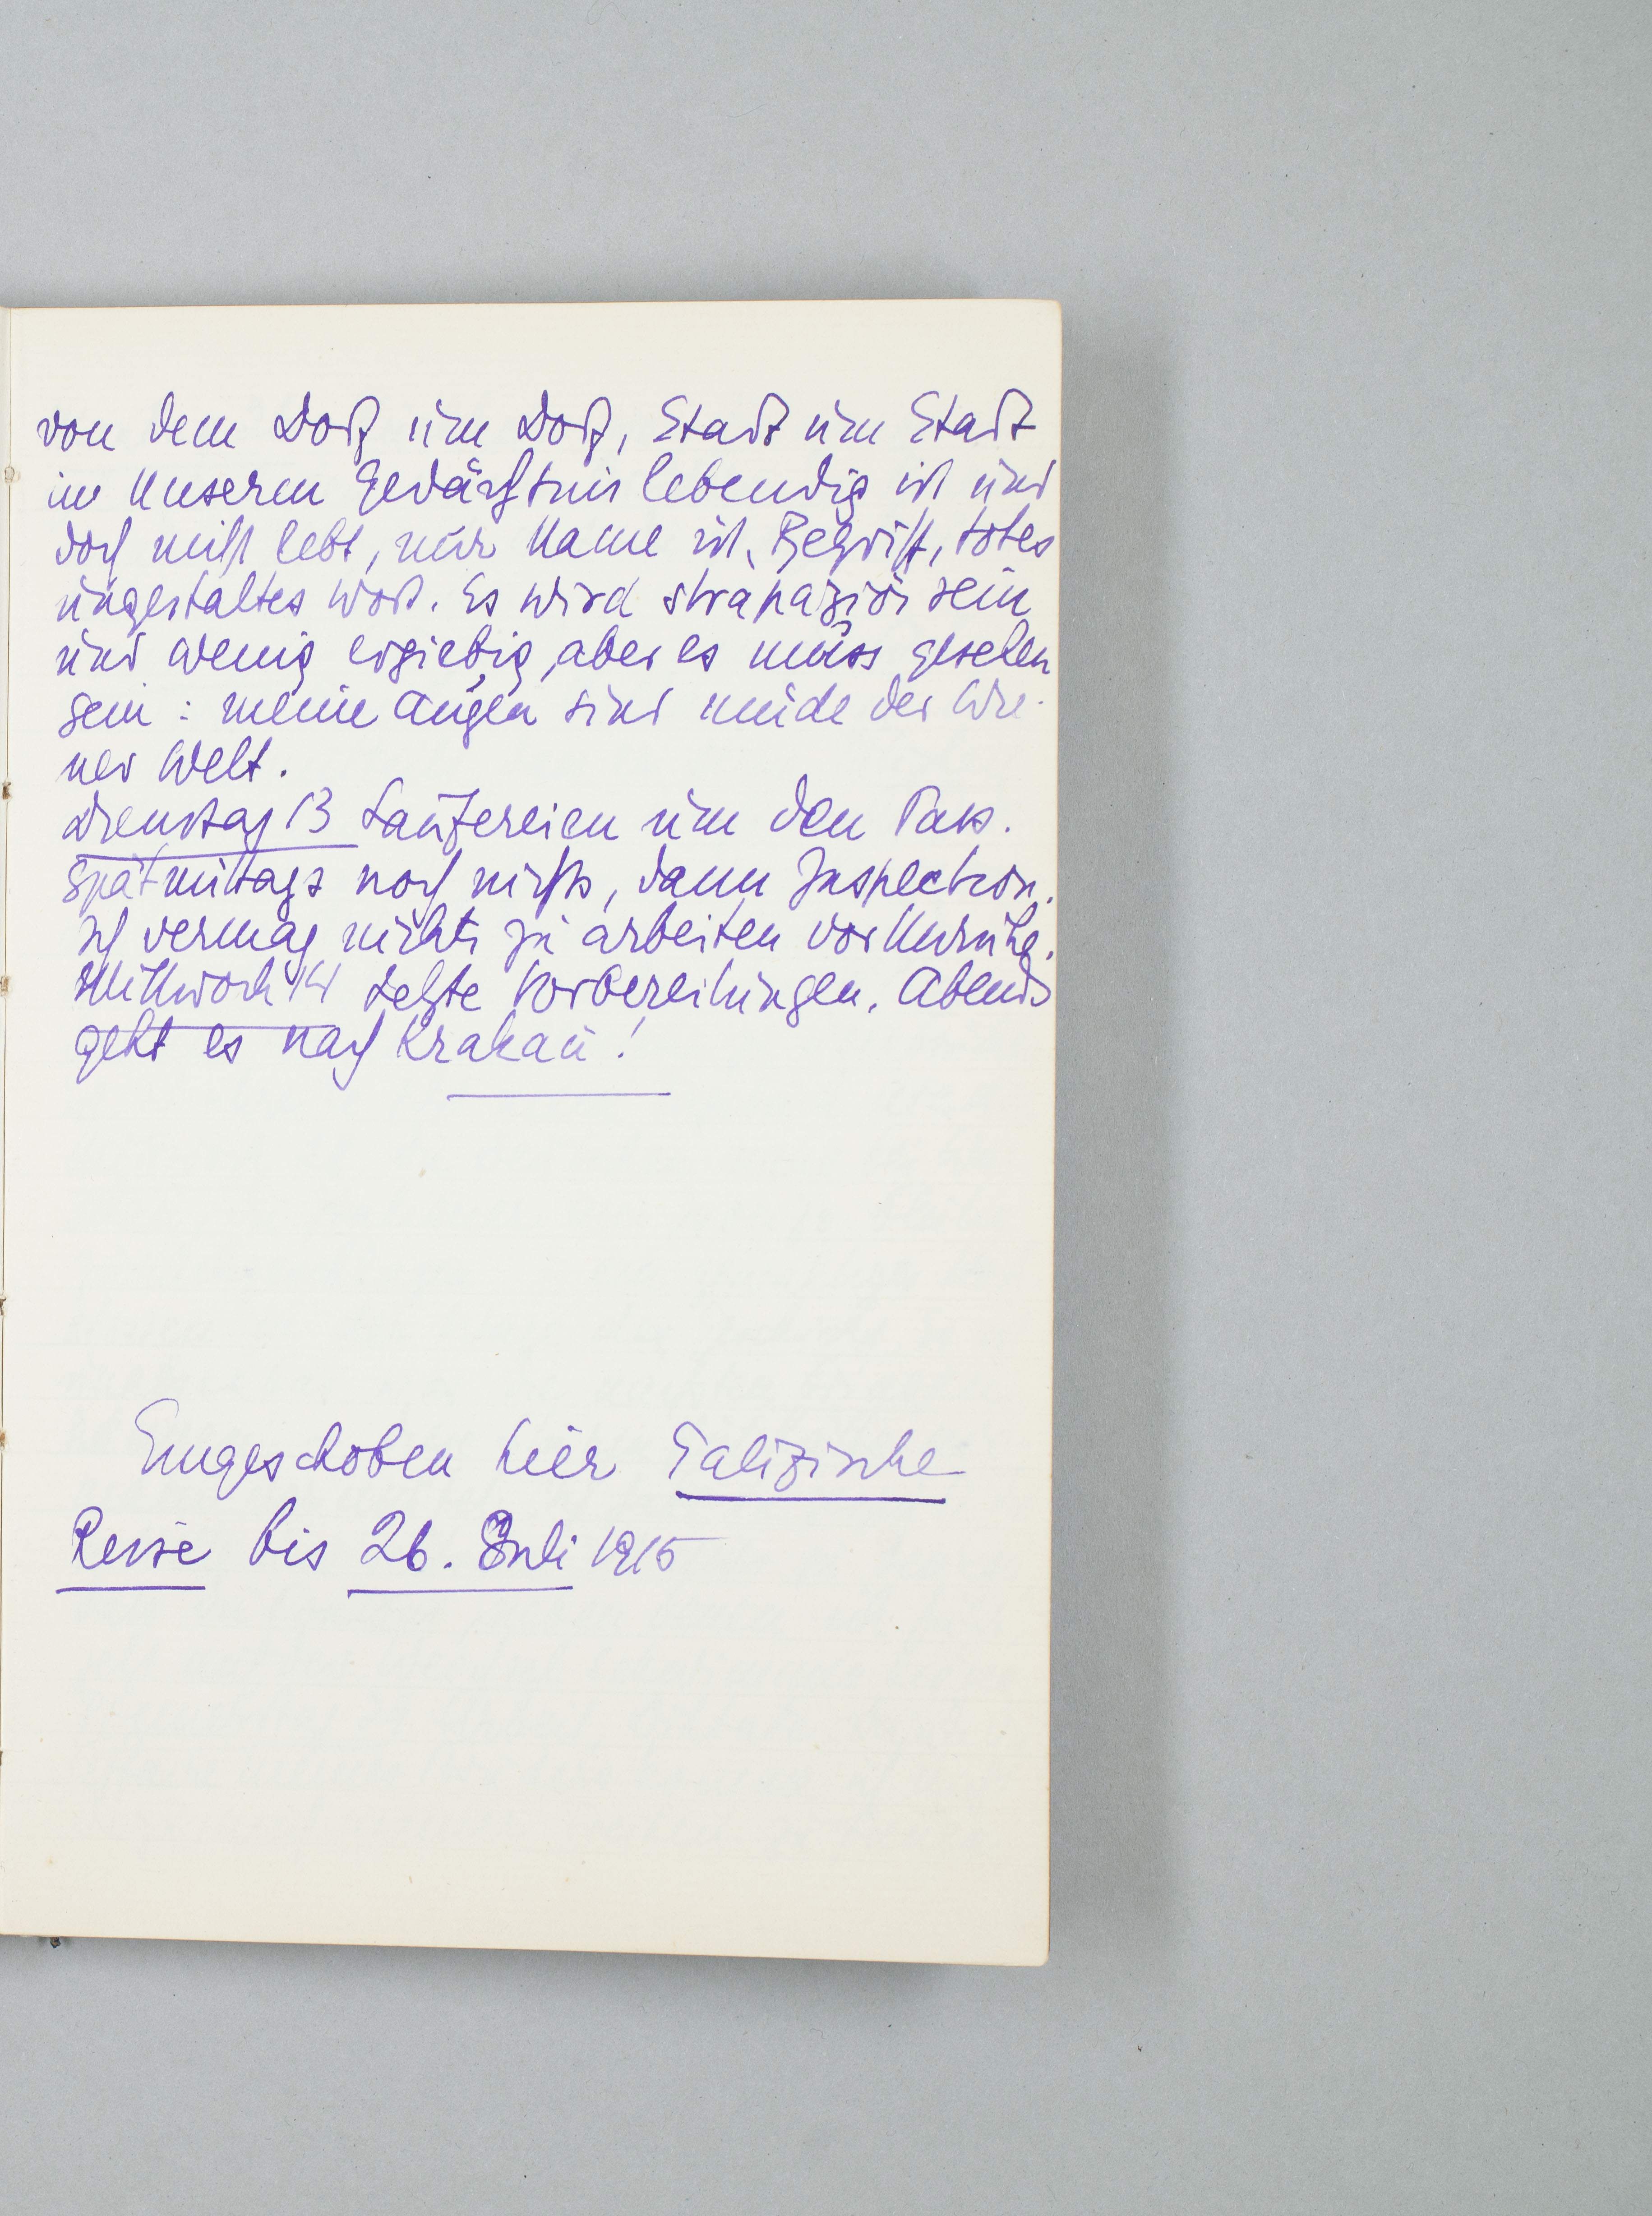 von dem Dorf um Dorf, Stadt um Stadt
in unserem Gedächtnis lebendig ist und
doch nicht lebt, nur Name ist, Begriff, totes
ungestaltes Wort. Es wird strapaziös sein
und wenig ergiebig, aber es muss gesehen
sein: meine Augen sind müde der Wie-
ner Welt.
Dienstag 13 Laufereien um den Pass.
Spätmittags noch nichts, dann Inspection.
Ich vermag nichts zu arbeiten vor Unruhe.
Mittwoch 14 Letzte Vorbereitungen. Abends
geht es nach Krakau!
Eingeschoben hier Galizische
Reise bis 26. Juli 1915